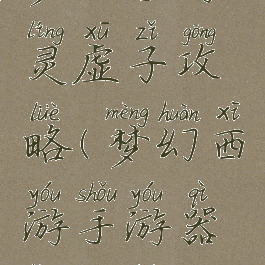 líng xū zǐ gōng
灵虚子攻
lüè mèng huàn xī
略(梦幻西
yóu shǒu yóu qì
游手游器